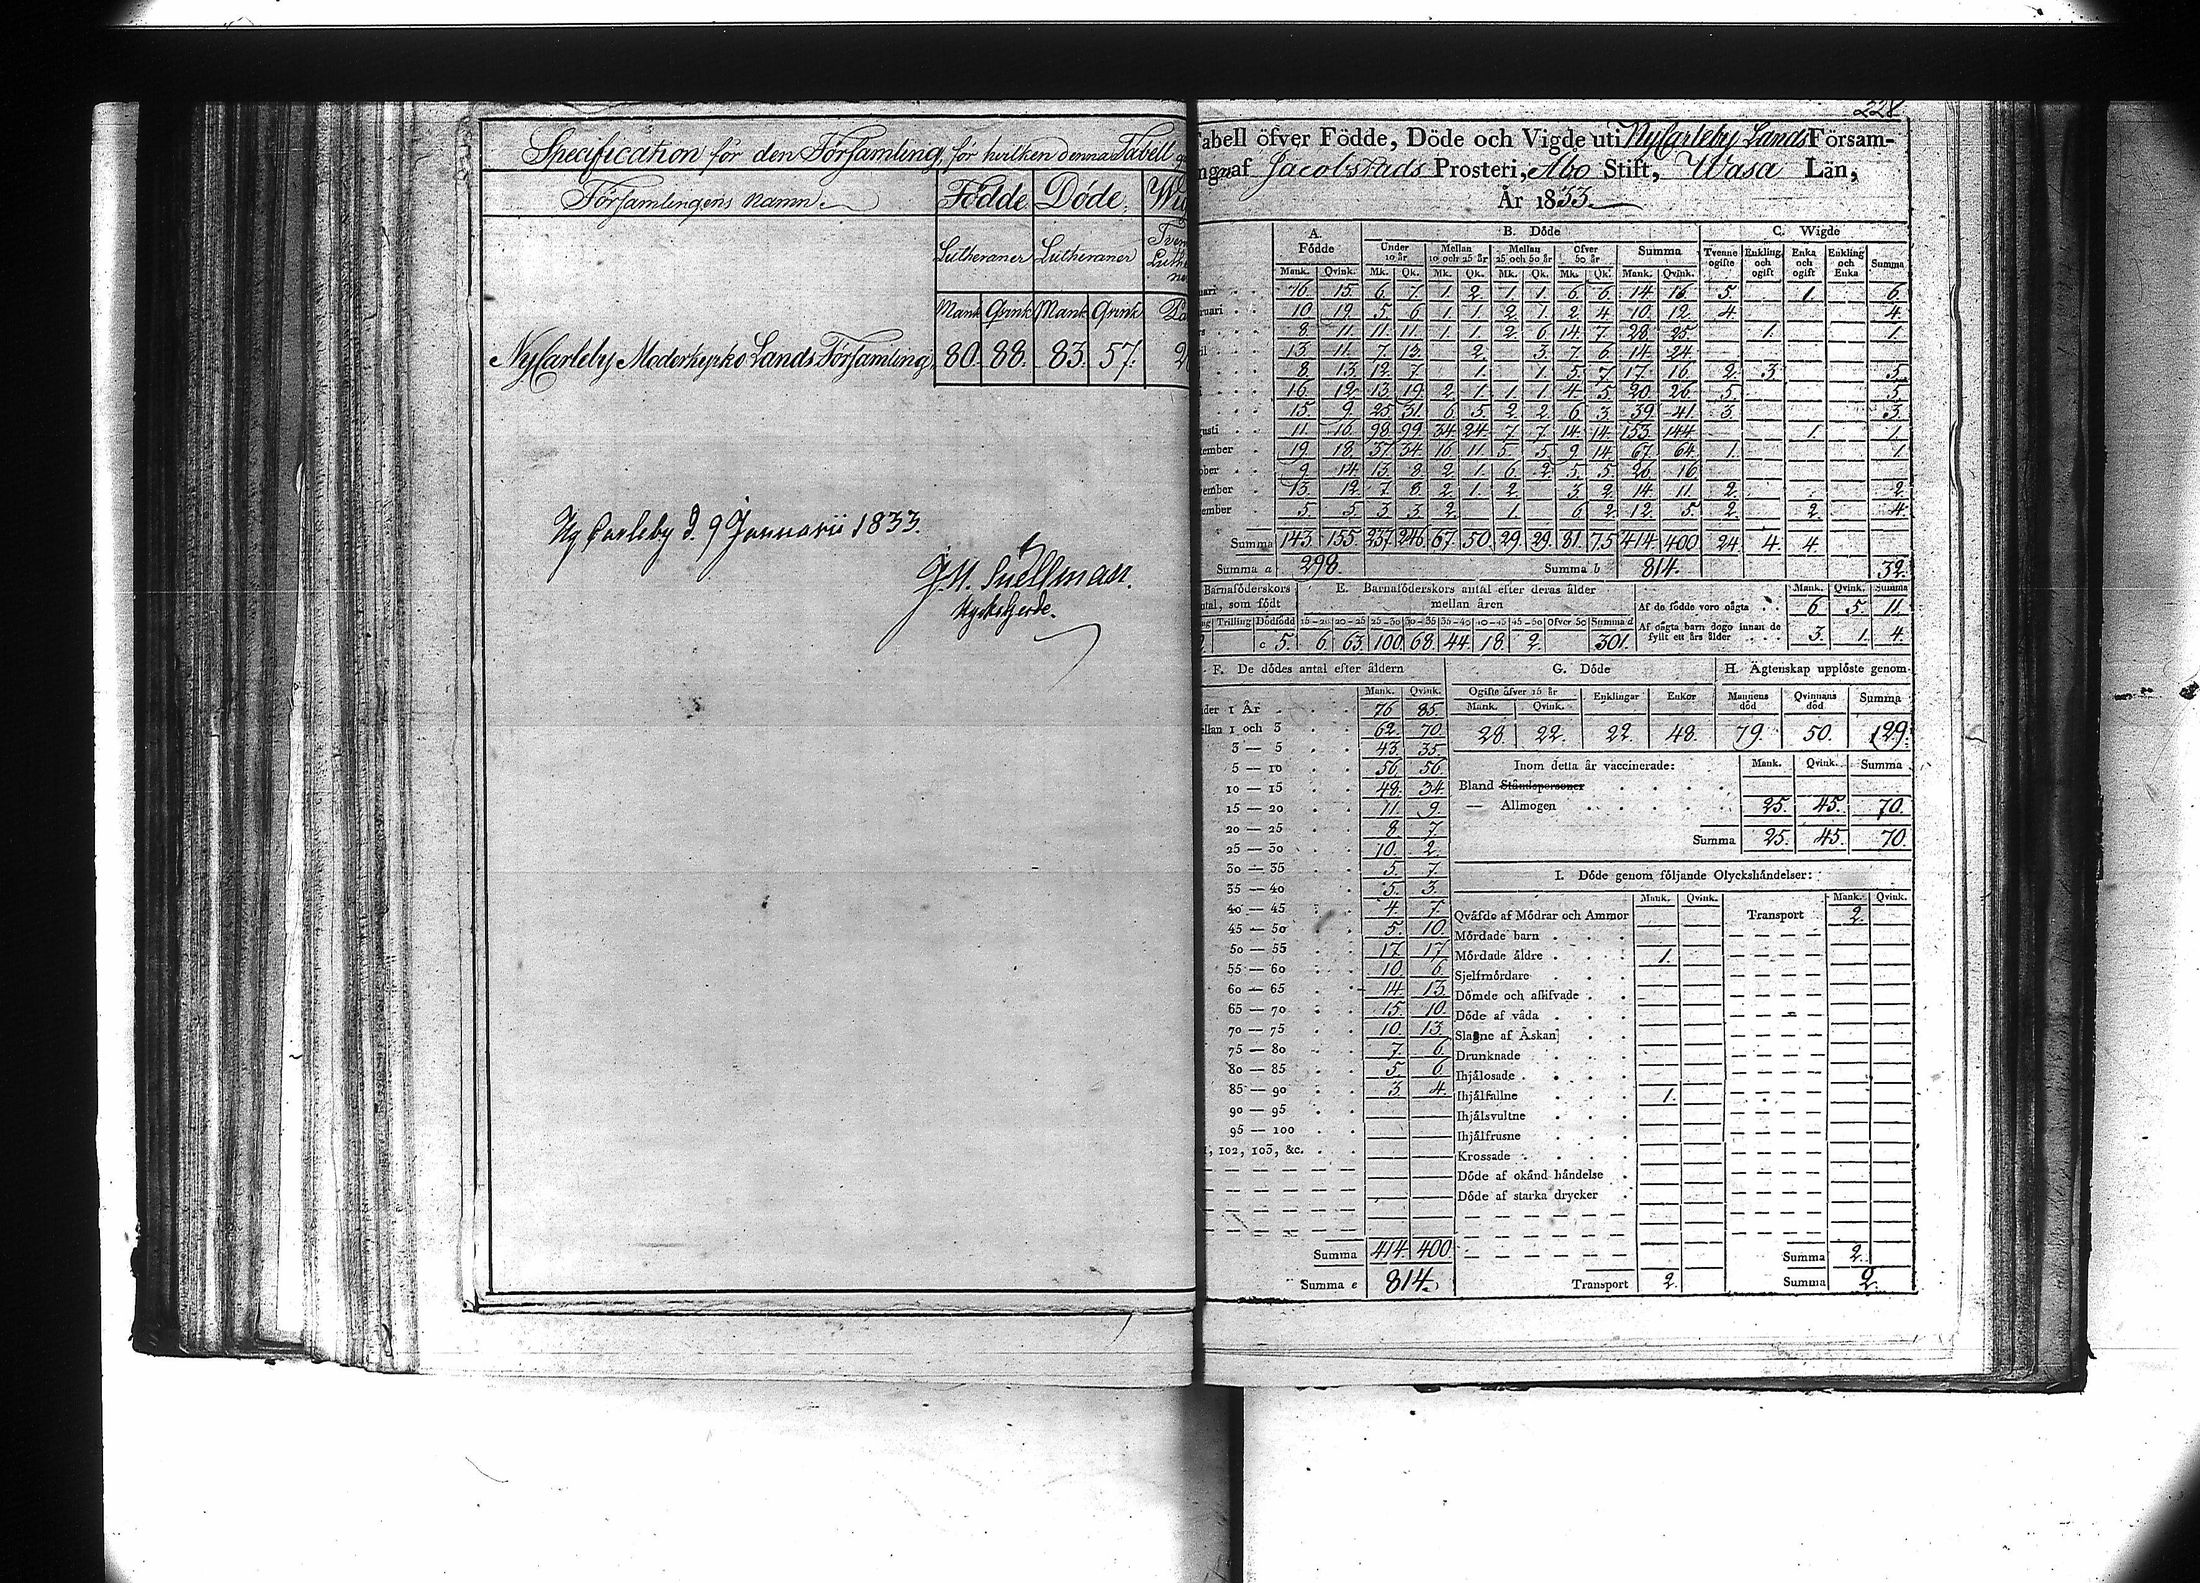 Specification för den Församling, för hvilken denna Tabell
Församlingens namn.
Födde Döde.
Lutheraner Lutheraner
Mank Qvink Mank Qvink
NyCarleby Moderkyrko Lands Församling 80. 88. 83. 57.
Ny Carleby d. 9 Januarii 1833.
Snellman
Kyrkoherde.
228
Tabell öfver Födde, Döde och Vigde uti NyCarleby Lands Försam-
af Jacobstads Prosteri, Åbo Stift, Wasa Län,
År 1833.
A. Födde B. Döde C. Wigde
Under 10 år Mellan 10 och 25 år Mellan 25 och 50 år Öfver 50 år Summa Tvenne ogifte Enkling och ogift Enka och ogift Enkling och Enka Summa
Mank. Qvink. Mk. Qk. Mk. Qk. Mk. Qk. Mk. Qk. Mank. Qvink.
16 15 6. 7. 1. 2. 1. 1. 6. 6. 14. 16. 5. 1. 6.
10 12 5 6 1. 1. 2. 1. 2 4 10. 12. 4. 4.
8 11 11. 11. 1. 1. 2 6 14 7. 28. 25. 1. 1.
13 11. 7. 13. 2. 3. 7 6. 14 24.
8 13 12 7. 1. 1. 5. 7 17. 16. 2. 3. 5.
16 12 13. 19. 2. 1. 1. 1. 4. 5. 20. 26. 5. 5.
15. 9. 25. 31. 6 5. 2. 2. 6 3. 39. 41. 3. 3.
11 16 98. 99. 34. 24. 7. 7. 14. 14. 153. 144. 1. 1.
19 18. 37. 34. 16. 11. 5. 5. 9. 14. 67. 64. 1. 1.
9 14 13. 8 2. 1. 6. 2. 5. 5. 26. 16.
13. 12. 7. 8. 2. 1. 2. 3. 2. 14. 11. 2. 2.
5 5 3 3 2. 1. 6 2. 12. 5. 2. 2. 4.
Summa 143. 155. 237. 246. 67. 50. 29. 29. 81. 75. 414. 400. 24. 4. 4.
Summa a 298. Summa b 814. 32.
Barnaföderskors E. Barnaföderskors antal efter deras ålder Mank. Qvink. Summa
som födt mellan åren Af de födde voro oägta 6 5. 11.
Trilling Dödfödd 15-20 20-25 25-30 30-35 35-40 40-45 45-50 Öfver 50 Summa d Af oägta barn dogo innan de fyllt ett års ålder 3. 1. 4.
c 5. 6. 63. 100. 68. 44. 18. 2. 301.
F. De dödes antal efter åldern G. Döde H. Ägtenskap upplöste genom
Mank. Qvink. Ogifte öfver 15 år Enklingar Enkor Mannens död Qvinnans död Summa
Mank. Qvink.
1 År 76 85
1 och 3 62. 70. 28. 22. 22. 48. 79. 50. 129.
3 — 5 43. 35. Inom detta år vaccinerade: Mank. Qvink. Summa
5 — 10 56. 56.
10 — 15 48. 34. Bland Ståndspersoner
15 — 20 11. 9. — Allmogen 25. 45. 70.
20 — 25 8 7.
25 — 30 10. 2. Summa 25. 45. 70.
30 — 35 5. 7.
35 — 40 5. 3. I. Döde genom följande Olyckshändelser:
Mank. Qvink. Mank. Qvink.
40 — 45 4. 7. Qväfde af Mödrar och Ammor Transport 2.
45 — 50 5. 10 Mördade barn
50 — 55 17. 17. Mördade äldre 1.
55 — 60 10 6. Sjelfmördare
60 — 65 14. 13. Dömde och aflifvade
65 — 70 15. 10. Döde af våda
70 — 75 10 13. Slagne af Åskan
75 — 80 7. 6. Drunknade
80 — 85 5. 6. Ihjälosade
85 — 90 3. 4. Ihjälfallne 1.
90 — 95 Ihjälsvultne
95 — 100 Ihjälfrusne
102, 103, &c. Krossade
Döde af okänd händelse
Döde af starka drycker
Summa 414. 400. Summa 2.
Summa e 814. Transport 2. Summa 2.